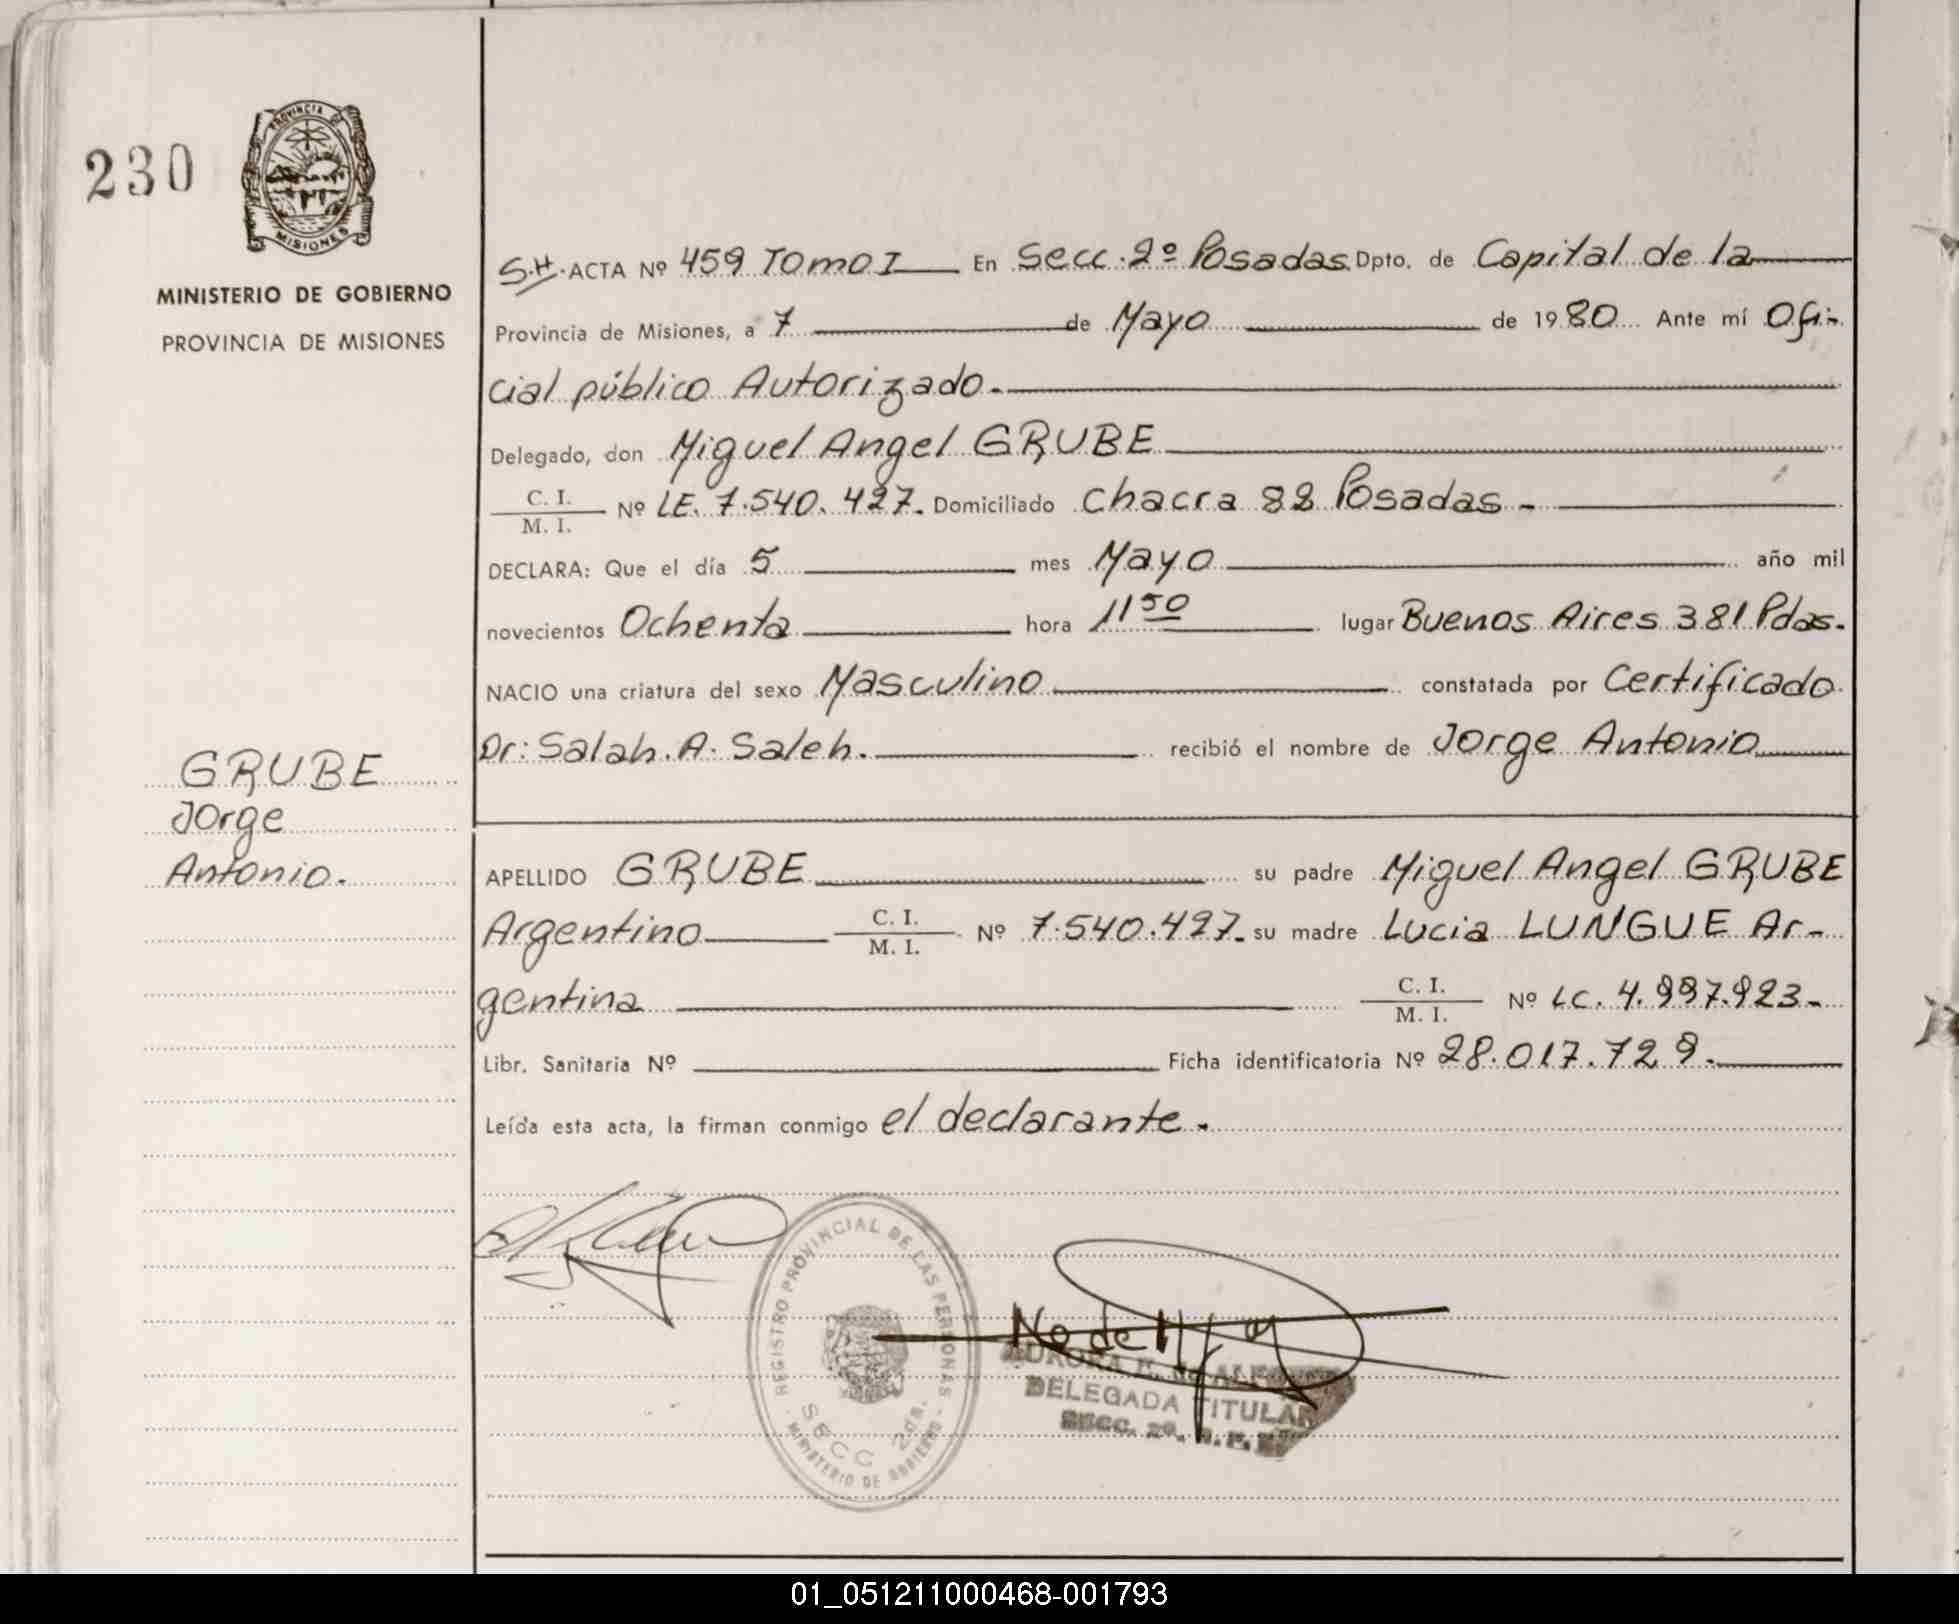 230
PROVINCIA DE
MISIONES
MINISTERIO DE GOBIERNO
PROVINCIA DE MISIONES
S.H. ACTA Nº 459 Tomo I En Secc. 2º Posadas Dpto. de Capital de la
Provincia de Misiones, a 7 de Mayo de 1980 Ante mí Ofi-
cial público Autorizado.
Delegado, don Miguel Angel GRUBE
C. I.
M. I. Nº LE. 7.540.427. Domiciliado Chacra 88 Posadas -
DECLARA: Que el día 5 mes Mayo año mil
novecientos Ochenta hora 11 50 lugar Buenos Aires 381 Pdas.
NACIO una criatura del sexo Masculino constatada por Certificado
Dr: Salah. A. Saleh. recibió el nombre de Jorge Antonio
GRUBE
Jorge
Antonio.
APELLIDO GRUBE su padre Miguel Angel GRUBE
Argentino C. I.
M. I. Nº 7.540.427. su madre Lucia LUNGUE Ar-
gentina C. I.
M. I. Nº LC. 4.997.923-
Libr. Sanitaria Nº Ficha identificatoria Nº 28.017.729.
Leída esta acta, la firman conmigo el declarante.
REGISTRO PROVINCIAL DE LAS PERSONAS
SECC 2da.
MINISTERIO DE GOBIERNO
AURORA
DELEGADA TITULAR
SECC. 2º.
01_051211000468-001793